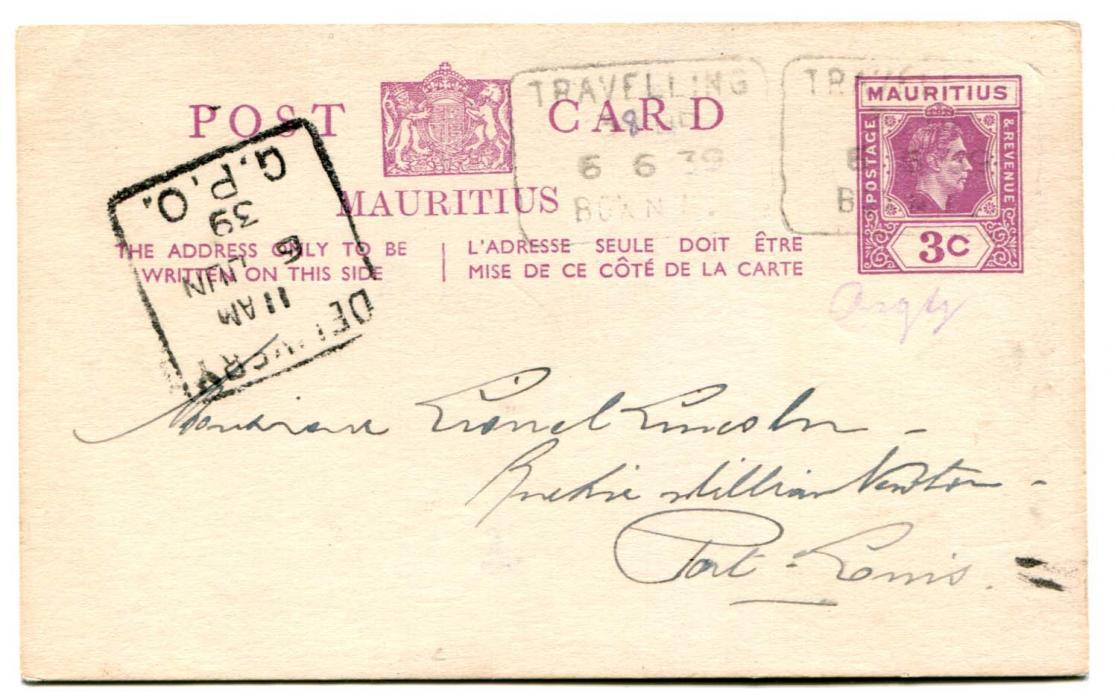 POST CARD
MAURITIUS
THE ADDRESS ONLY TO BE
WRITTEN ON THIS SIDE
L'ADRESSE SEULE DOIT ÊTRE
MISE DE CE CÔTÉ DE LA CARTE
TRAVELLING
6 6 39
MAURITIUS
POSTAGE
& REVENUE
3C
G.P.O.
39
JUN 6
11 AM
DELIVERY
Monsieur Lionel Lincoln -
William Newton -
Port-Louis.